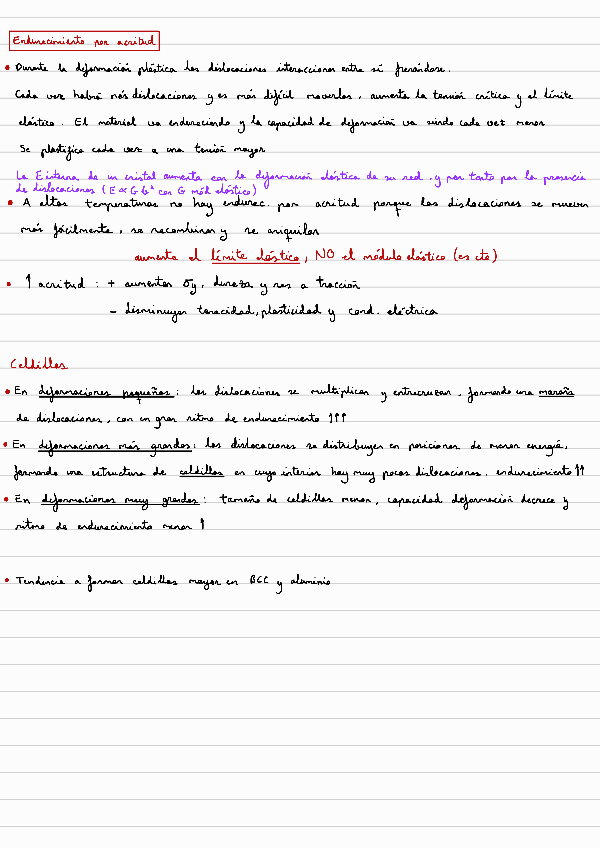 Endurecimiento por acritud
• Durante la deformación plástica las dislocaciones interaccionan entre sí frenándose.
Cada vez habrá más dislocaciones y es más difícil moverlas, aumenta la tensión crítica y el límite
elástico. El material va endureciendo y la capacidad de deformación va siendo cada vez menor
Se plastifica cada vez a una tensión mayor
La E interna de un cristal aumenta con la deformación elástica de su red, y por tanto por la presencia
de dislocaciones (E ∝ G b² con G mód. elástico)
• A altas temperaturas no hay endurec. por acritud porque las dislocaciones se mueven
más fácilmente, se recombinan y se aniquilan
aumenta el límite elástico, NO el módulo elástico (es cte)
• ↑ acritud : + aumentan σy, dureza y res a tracción
– disminuyen tenacidad, plasticidad y cond. eléctrica
Celdillas
• En deformaciones pequeñas: las dislocaciones se multiplican y entrecruzan, formando una maraña
de dislocaciones, con un gran ritmo de endurecimiento ↑↑↑
• En deformaciones más grandes: las dislocaciones se distribuyen en posiciones de menor energía,
formando una estructura de celdillas en cuyo interior hay muy pocas dislocaciones. endurecimiento ↑↑
• En deformaciones muy grandes: tamaño de celdillas menor, capacidad deformación decrece y
ritmo de endurecimiento menor ↑
• Tendencia a formar celdillas mayor en BCC y aluminio